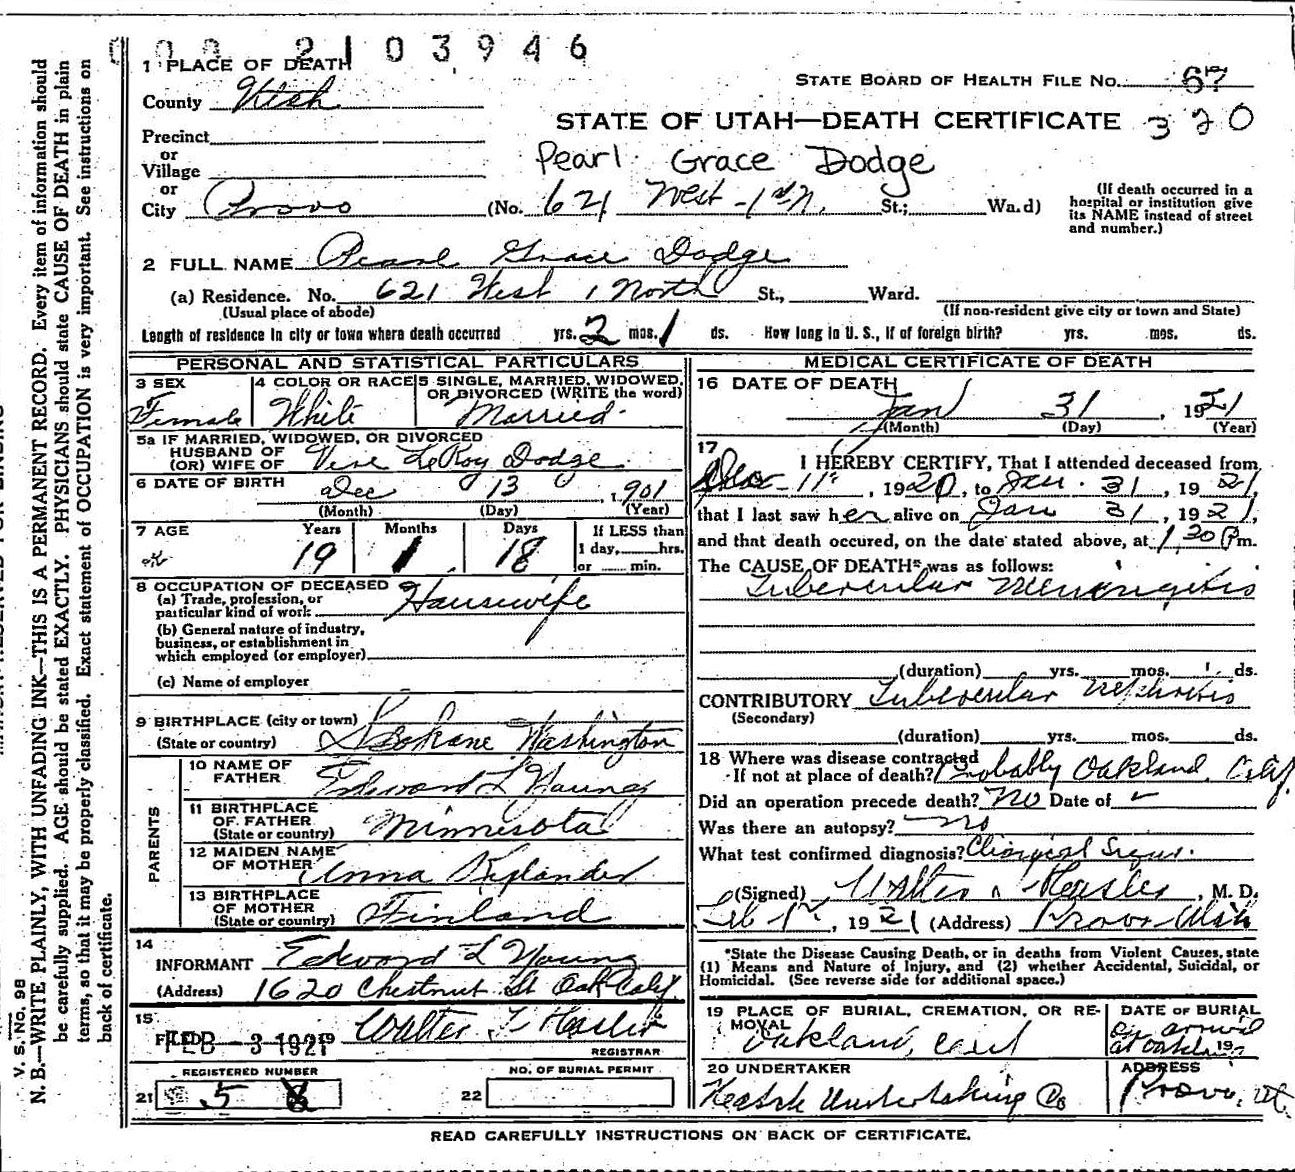 2103946
1 PLACE OF DEATH
STATE BOARD OF HEALTH FILE No. 67
County Utah
STATE OF UTAH—DEATH CERTIFICATE 320
Precinct
or
Village
Pearl Grace Dodge
or
City Provo (No. 621 West - 1st N. St.; Wa.d)
(If death occurred in a hospital or institution give its NAME instead of street and number.)
2 FULL NAME Pearl Grace Dodge
(a) Residence. No. 621 West 1 North St., Ward.
(Usual place of abode) (If non-resident give city or town and State)
Length of residence in city or town where death occurred yrs. 2 mos. 1 ds. How long in U. S., if of foreign birth? yrs. mos. ds.
PERSONAL AND STATISTICAL PARTICULARS
3 SEX
Female
4 COLOR OR RACE
White
5 SINGLE, MARRIED, WIDOWED, OR DIVORCED (WRITE the word)
Married
5a IF MARRIED, WIDOWED, OR DIVORCED
HUSBAND OF
(OR) WIFE OF LeRoy Dodge
6 DATE OF BIRTH Dec 13, 1901
(Month) (Day) (Year)
7 AGE Years Months Days If LESS than
19 1 18 1 day, hrs.
or min.
8 OCCUPATION OF DECEASED
(a) Trade, profession, or particular kind of work Housewife
(b) General nature of industry, business, or establishment in which employed (or employer)
(c) Name of employer
9 BIRTHPLACE (city or town)
(State or country) Spokane Washington
PARENTS
10 NAME OF FATHER Edward L Young
11 BIRTHPLACE OF FATHER (State or country) Minnesota
12 MAIDEN NAME OF MOTHER Anna
13 BIRTHPLACE OF MOTHER (State or country) Finland
14
INFORMANT Edward L Young
(Address) 1620 Chestnut St Oak Calif
15
FILED FEB - 3 1921 Walter T Hasler
REGISTRAR
REGISTERED NUMBER
21 5
NO. OF BURIAL PERMIT
22
MEDICAL CERTIFICATE OF DEATH
16 DATE OF DEATH
Jan 31, 1921
(Month) (Day) (Year)
17
I HEREBY CERTIFY, That I attended deceased from
11, 1920, to Jan. 31, 1921,
that I last saw her alive on Jan 31, 1921,
and that death occured, on the date stated above, at 1.30 Pm.
The CAUSE OF DEATH* was as follows:
Tubercular Meningitis
(duration) yrs. mos. ds.
CONTRIBUTORY Tubercular Nephritis
(Secondary)
(duration) yrs. mos. ds.
18 Where was disease contracted
If not at place of death? Probably Oakland, Calif.
Did an operation precede death? No Date of
Was there an autopsy? no
What test confirmed diagnosis? Clinical Signs.
(Signed) Walter Hasler, M. D.
Feb 1st, 1921 (Address) Provo Utah
*State the Disease Causing Death, or in deaths from Violent Causes, state
(1) Means and Nature of Injury, and (2) whether Accidental, Suicidal, or
Homicidal. (See reverse side for additional space.)
19 PLACE OF BURIAL, CREMATION, OR REMOVAL
Oakland, Calif
DATE OF BURIAL
on arrival
at Oakland 19
20 UNDERTAKER
Undertaking Co
ADDRESS
Provo, Ut.
READ CAREFULLY INSTRUCTIONS ON BACK OF CERTIFICATE.
V. S. No. 98
N. B.—WRITE PLAINLY, WITH UNFADING INK—THIS IS A PERMANENT RECORD. Every item of information should
be carefully supplied. AGE should be stated EXACTLY. PHYSICIANS should state CAUSE OF DEATH in plain
terms, so that it may be properly classified. Exact statement of OCCUPATION is very important. See instructions on
back of certificate.